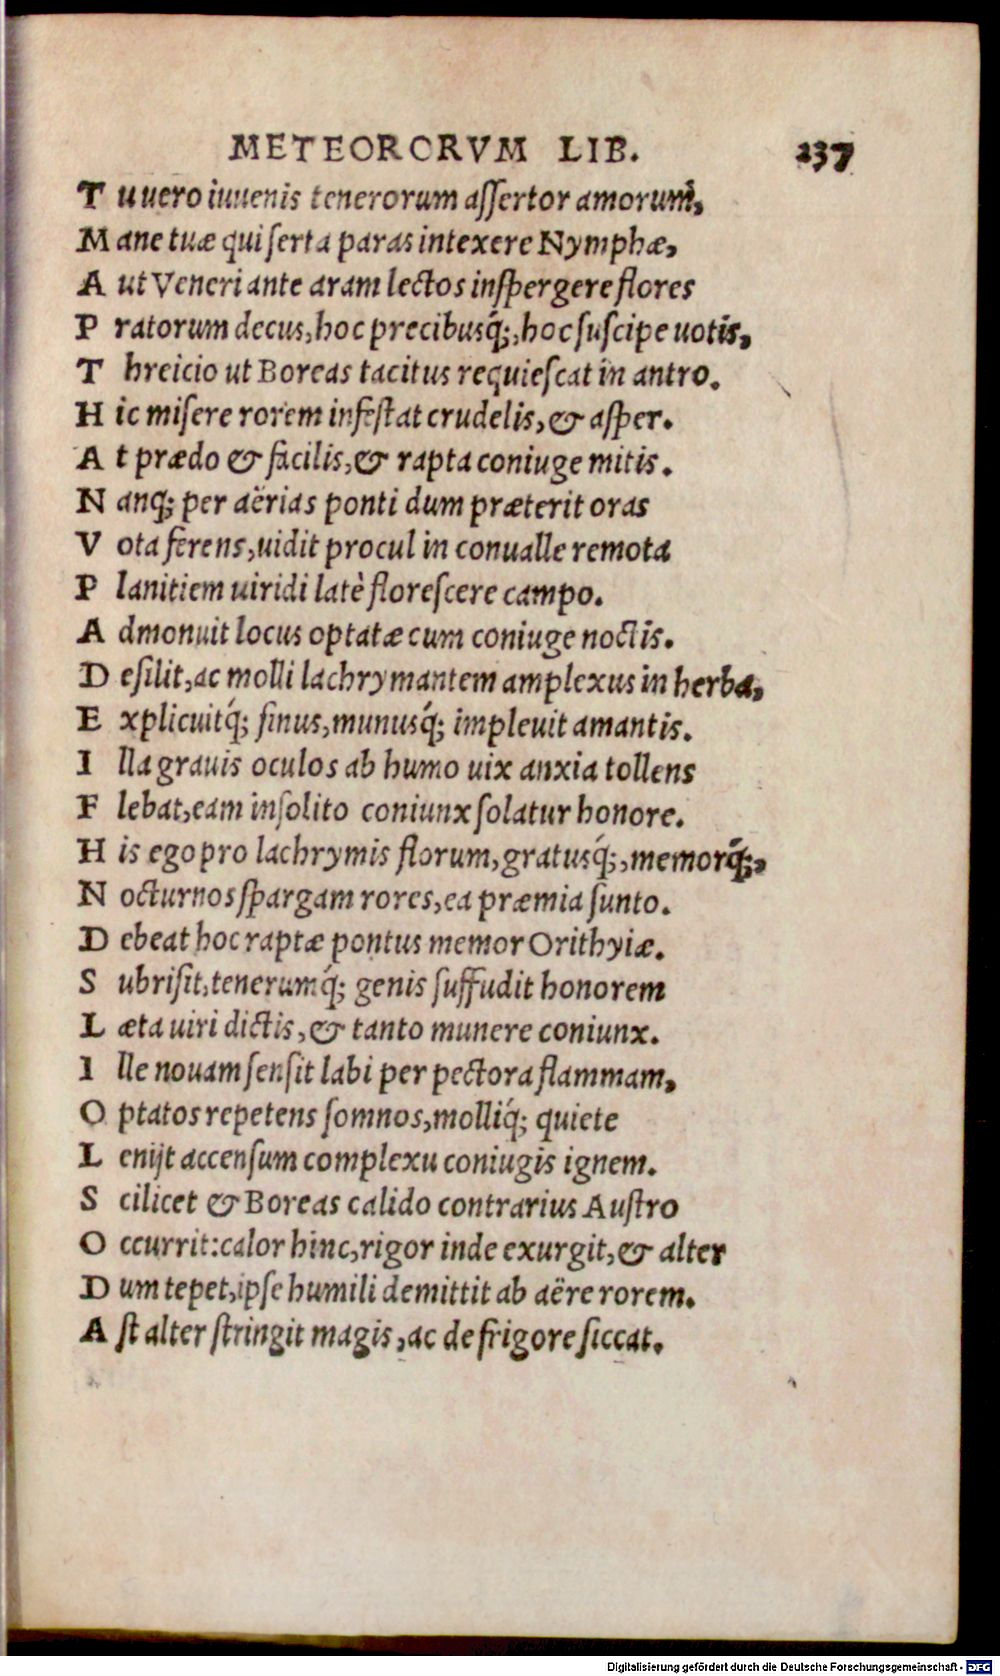 METEORORVM LIB. 237
T u uero iuuenis tenerorum aſſertor amorum,
M ane tuæ qui ſerta paras intexere Nymphæ,
A ut Veneri ante aram lectos inſpergere flores
P ratorum decus, hoc precibusq́;, hoc ſuſcipe uotis,
T hreicio ut Boreas tacitus requieſcat in antro.
H ic miſere rorem infeſtat crudelis, & aſper.
A t prædo & facilis, & rapta coniuge mitis.
N anq; per aërias ponti dum præterit oras
V ota ferens, uidit procul in conualle remota
P lanitiem uiridi latè floreſcere campo.
A dmonuit locus optatæ cum coniuge noctis.
D eſilit, ac molli lachrymantem amplexus in herba,
E xplicuitq́; ſinus, munusq́; impleuit amantis.
I lla grauis oculos ab humo uix anxia tollens
F lebat, eam inſolito coniunx ſolatur honore.
H is ego pro lachrymis florum, gratusq́;, memorq́;,
N octurnos ſpargam rores, ea præmia ſunto.
D ebeat hoc raptæ pontus memor Orithyiæ.
S ubriſit, tenerumq́; genis ſuffudit honorem
L æta uiri dictis, & tanto munere coniunx.
I lle nouam ſenſit labi per pectora flammam,
O ptatos repetens ſomnos, molliq́; quiete
L enijt accenſum complexu coniugis ignem.
S cilicet & Boreas calido contrarius Auſtro
O ccurrit: calor hinc, rigor inde exurgit, & alter
D um tepet, ipſe humili demittit ab aëre rorem.
A ſt alter ſtringit magis, ac de frigore ſiccat.
Digitalisierung gefördert durch die Deutsche Forschungsgemeinschaft - DFG